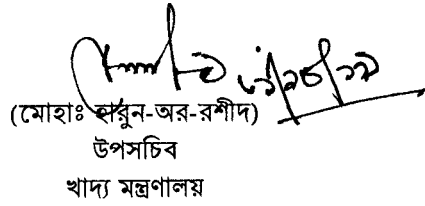 (মোহাঃ হারুন-অর-রশীদ)
উপসচিব
খাদ্য মন্ত্রণালয়